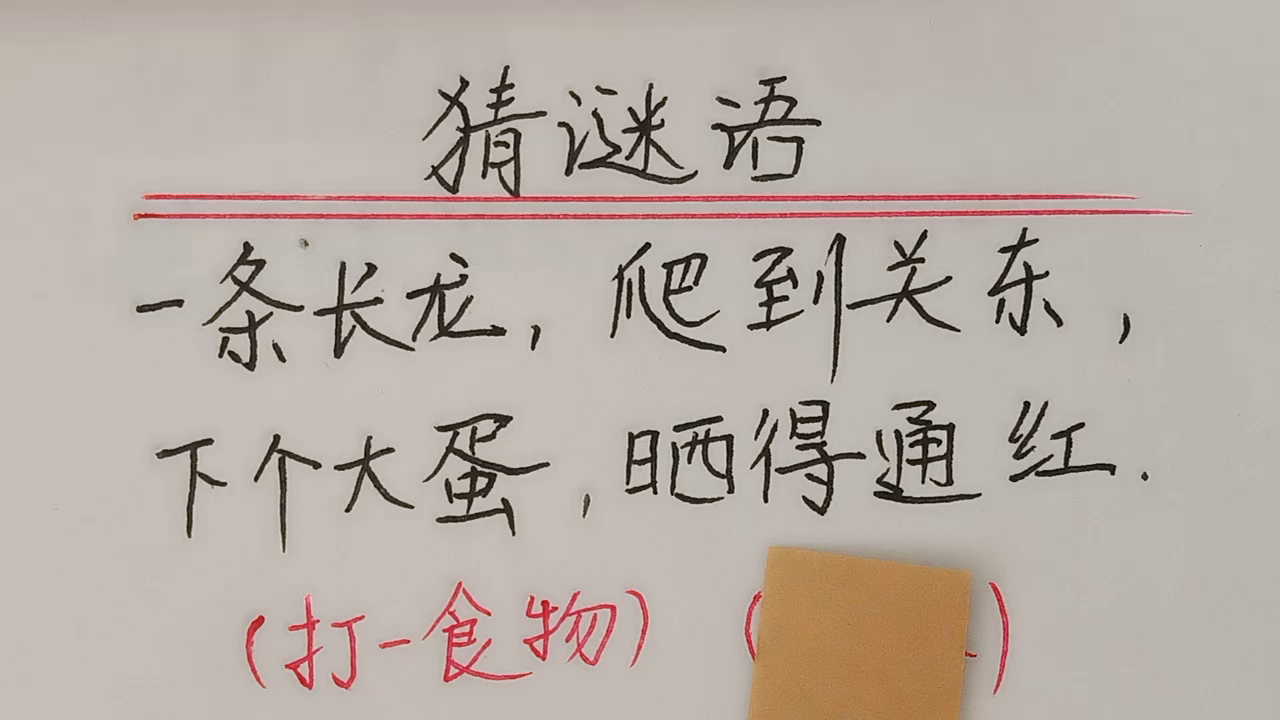 猜谜语
一条长龙，爬到关东，
下个大蛋，晒得通红.
（打一食物）（ ）